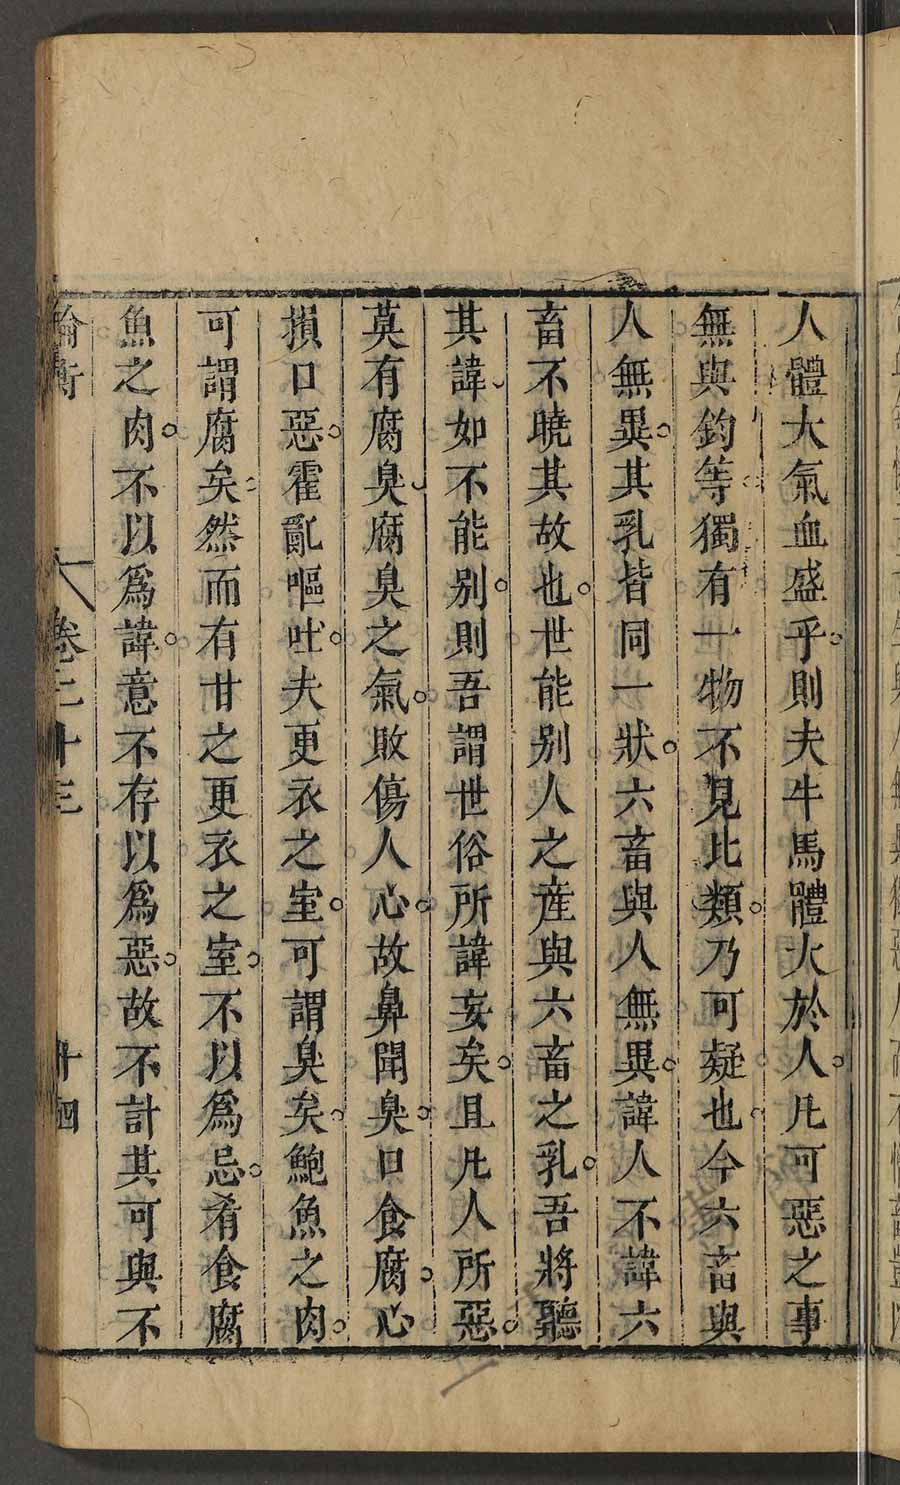 人體大氣血盛乎則夫牛馬體大於人凡可惡之事
無與鈞等獨有一物不見比類乃可疑也今六畜與
人無異其乳皆同一狀六畜與人無異諱人不諱六
畜不曉其故也世能別人之產與六畜之乳吾將聽
其諱如不能別則吾謂世俗所諱妄矣且凡人所惡
莫有腐臭腐臭之氣敗傷人心故鼻聞臭口食腐心
損口惡霍亂嘔吐夫更衣之室可謂臭矣鮑魚之肉
可謂腐矣然而有甘之更衣之室不以爲忌肴食腐
魚之肉不以爲諱意不存以爲惡故不計其可與不
論衡 卷二十三 十四